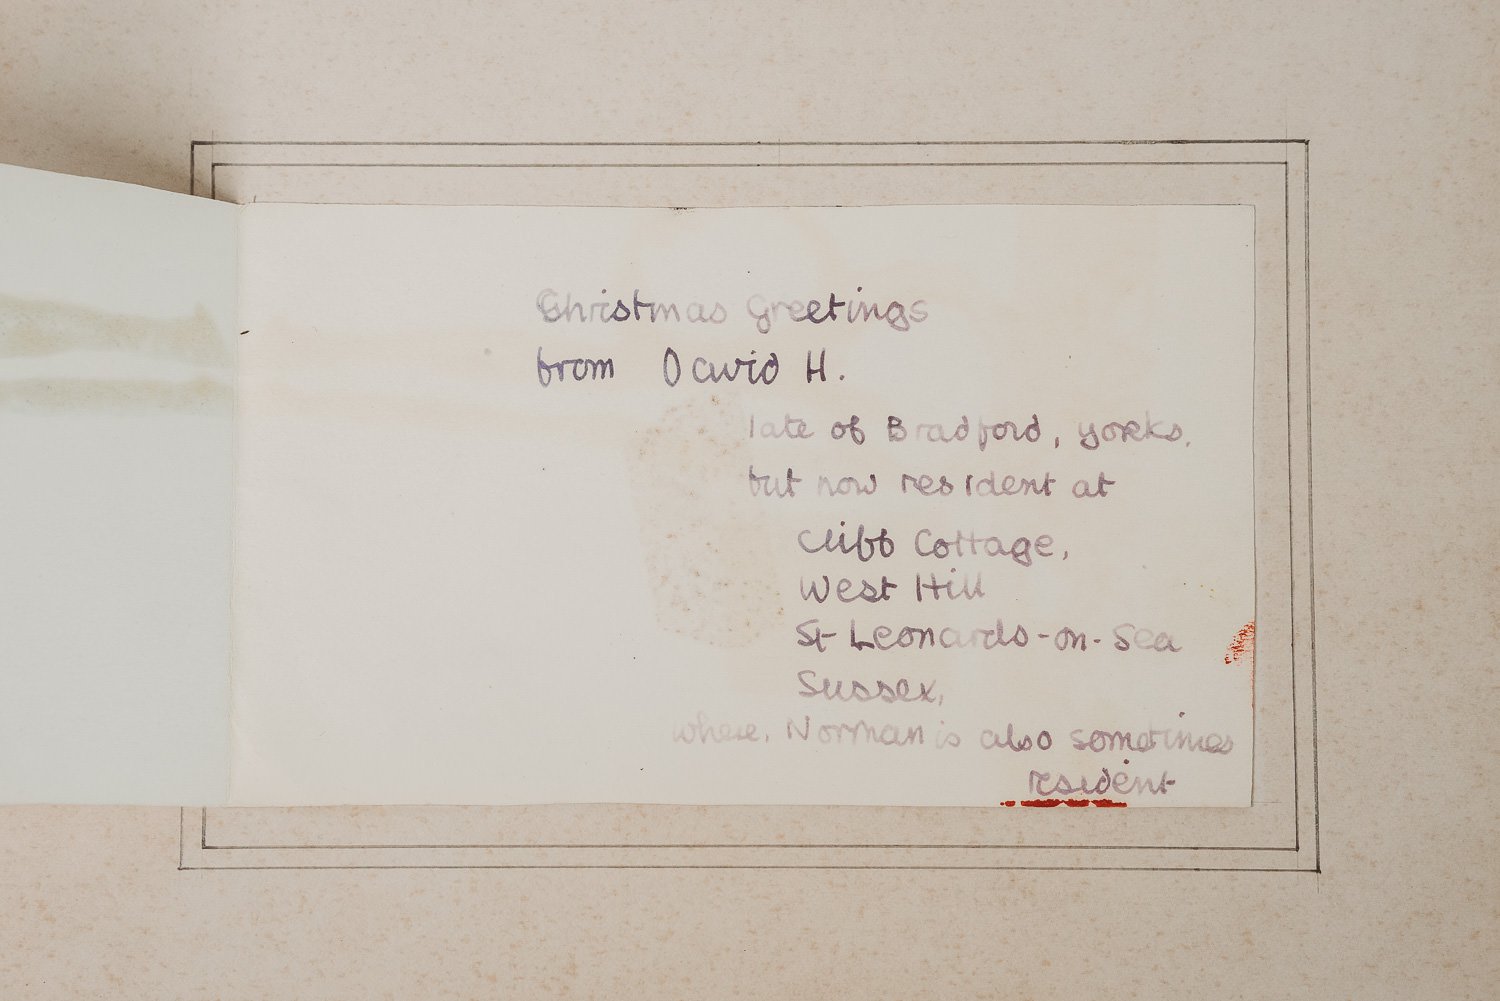 Christmas Greetings
from David H.
late of Bradford, yorks.
but now resident at
Cliff Cottage,
West Hill
St Leonards-on-Sea
Sussex,
where, Norman is also sometimes
resident